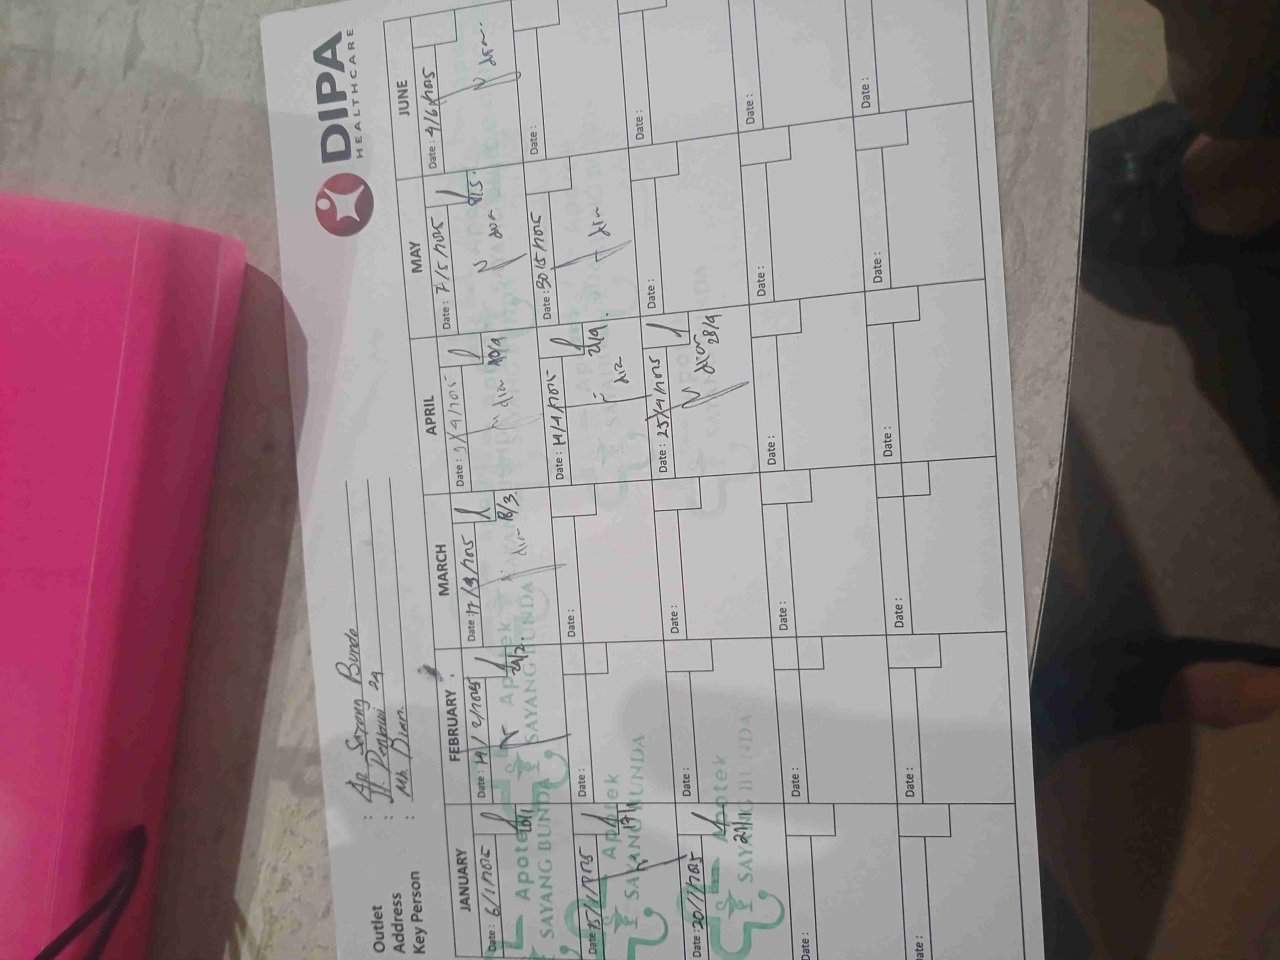 DIPA
HEALTHCARE
Outlet : Ap Sayang Bunda
Address : Jl.
Key Person : Mb Dian
JANUARY FEBRUARY MARCH APRIL MAY JUNE
Date : 6/1/2025 Date : 14/2/2025 Date : 17/3/2025 Date : Date : 7/5/2025 Date : 4/6/2025
24/2. dian 18/3 dian dian 8/5. dian
Apotek Apotek Apotek
SAYANG BUNDA SAYANG BUNDA SAYANG BUNDA
Date : 15/1/2025 Date : Date : Date : 14/4/2025 Date : 30/5/2025 Date :
17/1 dian 21/4. dian
Apotek
SAYANG BUNDA
Date : 20/1/2025 Date : Date : Date : 25/4/2025 Date : Date :
21/1 dian 28/4
Apotek
SAYANG BUNDA
Date : Date : Date : Date : Date : Date :
Date : Date : Date : Date : Date : Date :